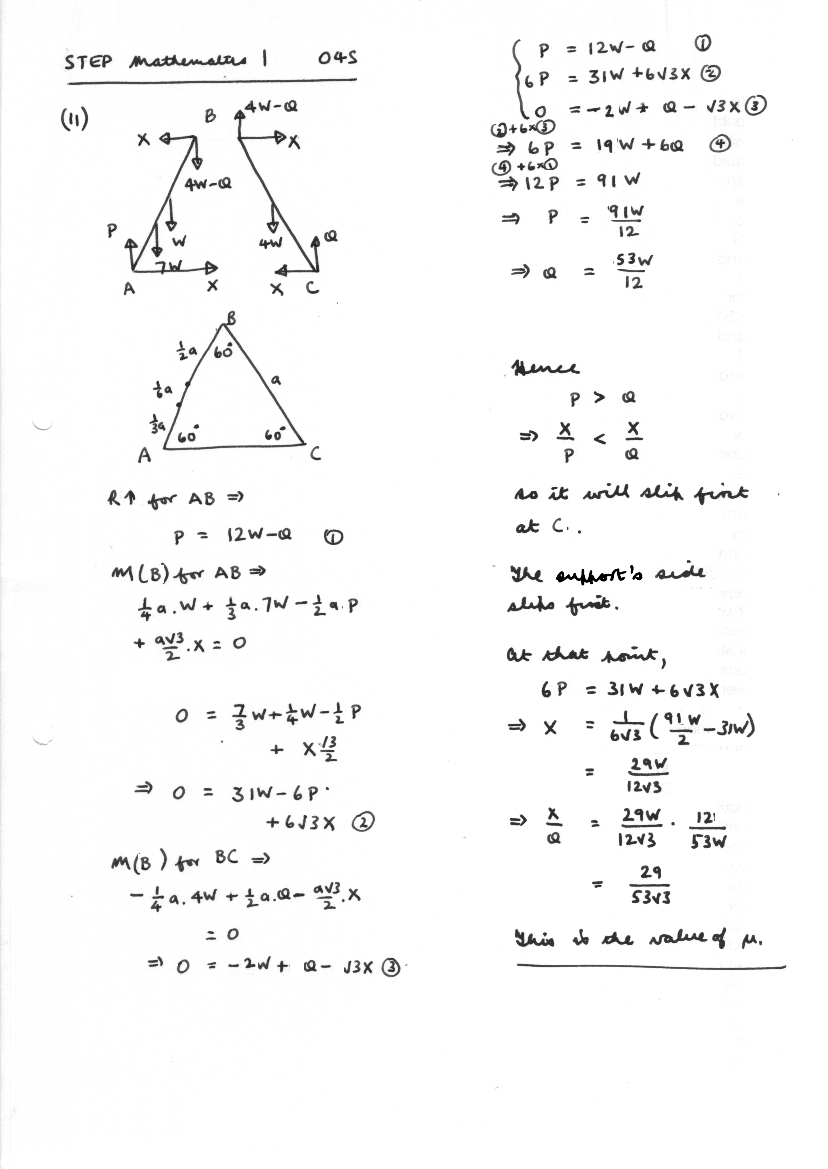 STEP Mathematics 1 04S
(11)
B 4W-Q
X X
4W-Q
P W 4W Q
7W
A X X C
B
½a 60°
⅙a a
⅓a 60° 60°
A C
R↑ for AB ⇒
P = 12W-Q ①
M(B) for AB ⇒
¼a.W + ⅓a.7W - ½a.P
+ a√3/2.X = 0
0 = 7/3 W + ¼W - ½P
+ X √3/2
⇒ 0 = 31W - 6P
+ 6√3X ②
M(B) for BC ⇒
-¼a.4W + ½a.Q - a√3/2.X
= 0
⇒ 0 = -2W + Q - √3X ③
P = 12W - Q ①
6P = 31W + 6√3X ②
0 = -2W + Q - √3X ③
②+6×③
⇒ 6P = 19W + 6Q ④
④+6×①
⇒ 12P = 91W
⇒ P = 91W/12
⇒ Q = 53W/12
Hence
P > Q
⇒ X/P < X/Q
so it will slip first
at C.
The support's side
slips first.
At that point,
6P = 31W + 6√3X
⇒ X = 1/6√3 (91W/2 - 31W)
= 29W/12√3
⇒ X/Q = 29W/12√3 . 12/53W
= 29/53√3
This is the value of μ.